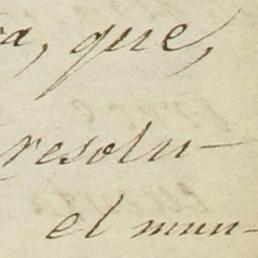 a, que,
resolu-
el mun-